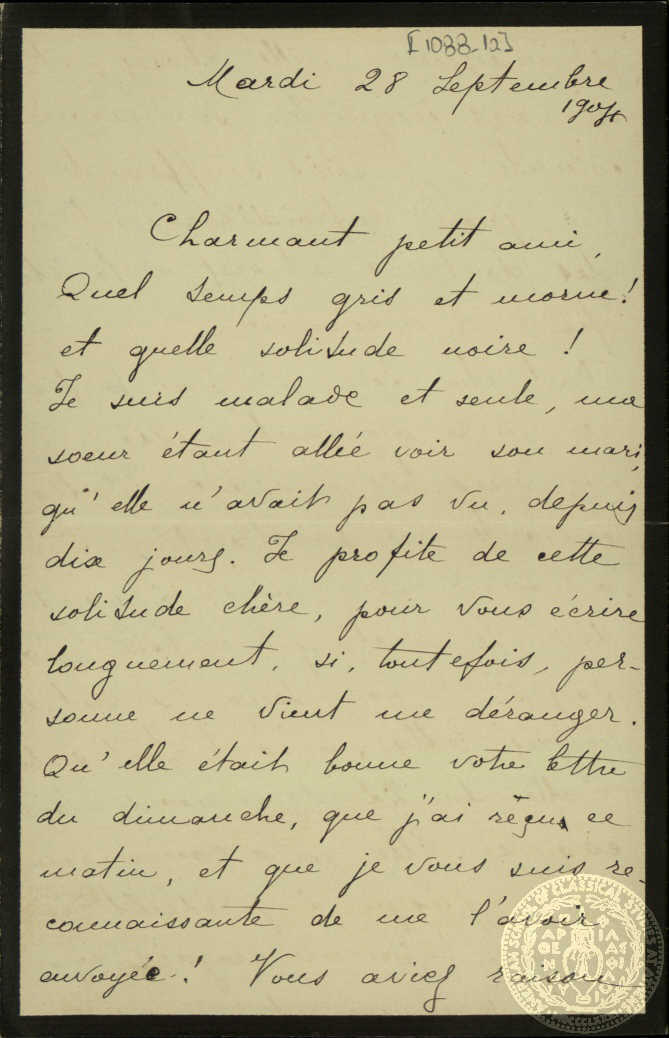 [1088-12]
Mardi 28 Septembre
Charmant petit ami,
Quel temps gris et morne!
et quelle solitude noire!
Je suis malade et seule, ma
soeur étant allée voir son mari,
qu'elle n'avait pas vu, depuis
dix jours. Je profite de cette
solitude chère, pour vous écrire
longuement, si, toutefois, per-
sonne ne vient me déranger.
Qu'elle était bonne votre lettre
du dimanche, que j'ai reçue ce
matin, et que je vous suis re-
connaissante de me l'avoir
envoyée! Vous aviez raison